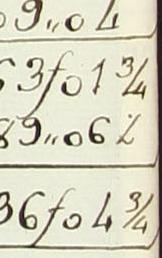 09,,04
63fo1 3/4
89,,06 1/2
36fo4 3/4